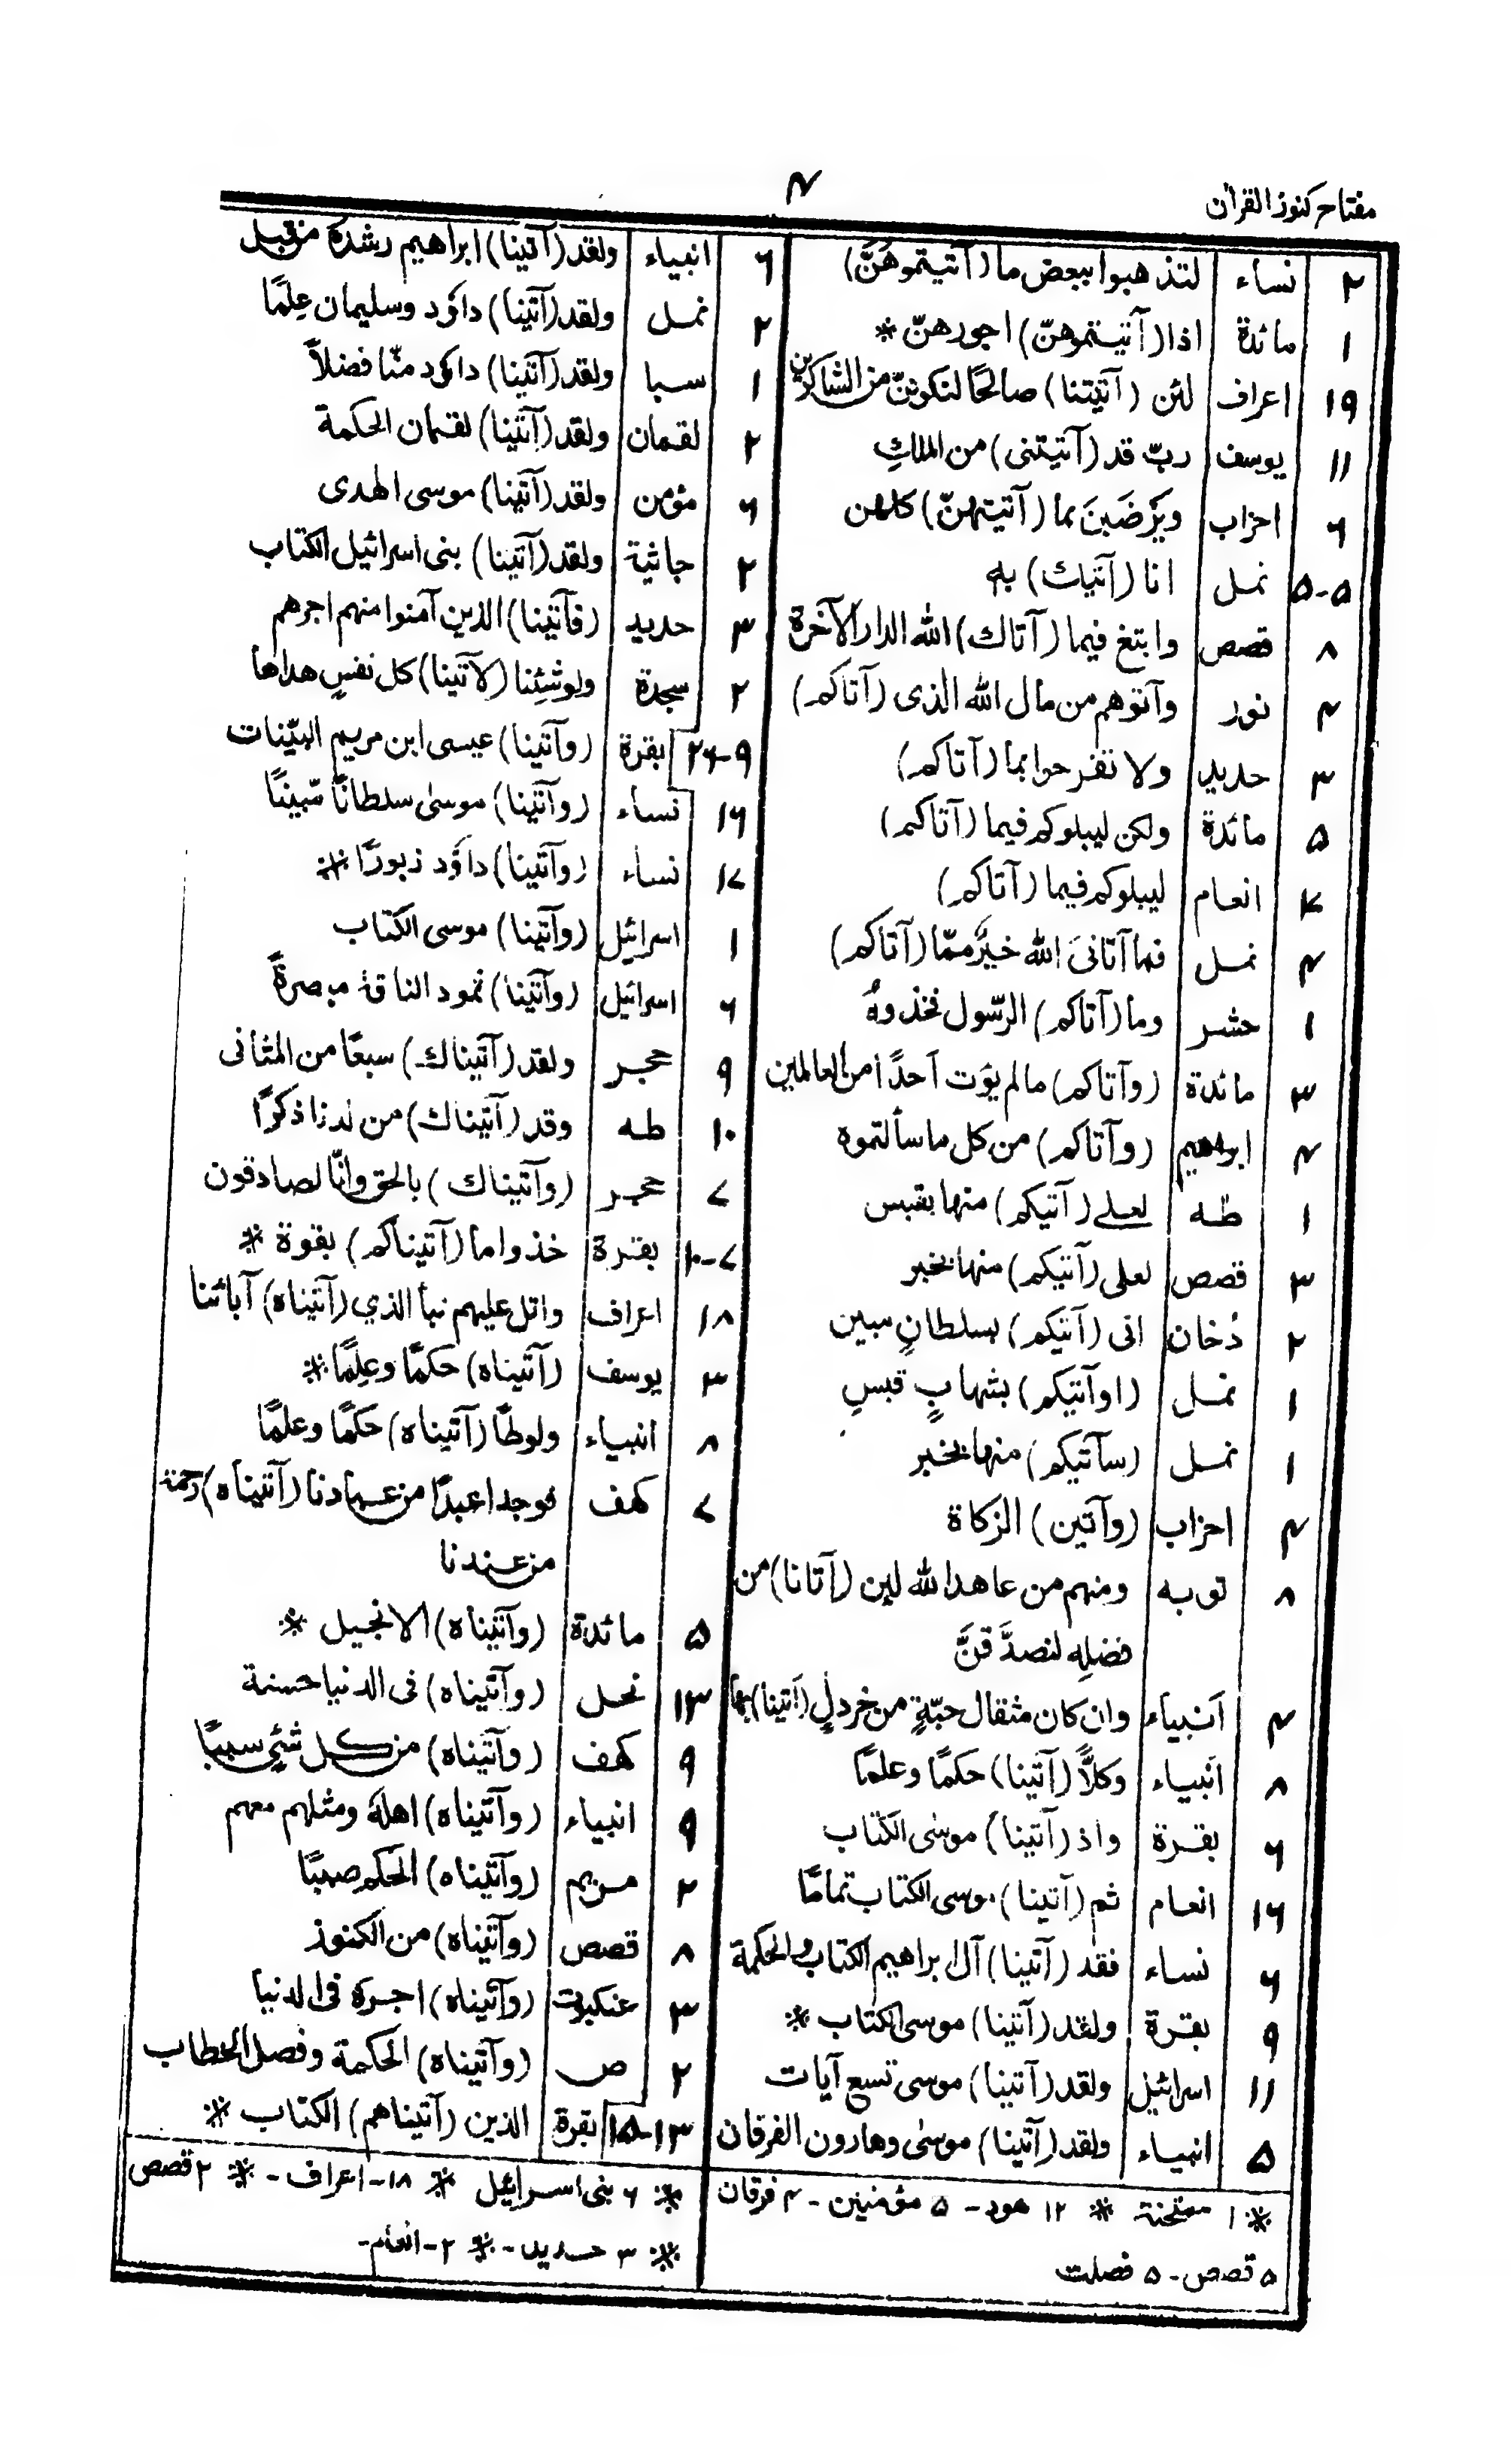 مفتاح کنوز القرآن
۴
۲ نساء لتذهبوا ببعض ما (آتیتموهُنَّ)
۱ مائدة اذا (آتیتموهنّ) اجورهنّ *
۱۹ اعراف لئن (آتیتنا) صالحًا لنکوننّ من الشاکرین
۱۱ یوسف ربّ قد (آتیتنی) من الملكِ
۶ احزاب ویَرضَینَ بما (آتیتهنّ) کلهن
۵-۵ نمل انا (آتیك) به
۸ قصص وابتغ فیما (آتاك) الله الدار الآخرة
۴ نور وآتوهم من مال الله الذی (آتاکم)
۳ حدید ولا تفرحوا بما (آتاکم)
۵ مائدة ولکن لیبلوکم فیما (آتاکم)
۷ انعام لیبلوکم فیما (آتاکم)
۴ نمل فما آتانیَ الله خیرٌ ممّا (آتاکم)
۱ حشر وما (آتاکم) الرّسول فخذوهُ
۳ مائدة (وآتاکم) مالم یؤت آحدًا من العالمین
۴ ابراهیم (وآتاکم) من کل ما سألتموه
۱ طٰه لعلی (آتیکم) منها بقبس
۳ قصص لعلی (آتیکم) منها بخبر
۲ دُخان انی (آتیکم) بسلطانٍ مبین
۱ نمل (اوآتیکم) بشهابٍ قبسٍ
۱ نمل (سآتیکم) منها بخبر
۴ احزاب (وآتین) الزکاة
۸ توبه ومنهم من عاهد الله لین (آتانا) من
فضلِه لنصدَّقنَّ
۴ انبیاء وان کان مثقال حبّةٍ من خردلٍ (اَتینا) بها
۸ انبیاء وکلاًّ (آتینا) حکمًا وعلمًا
۶ بقرة واذ (آتینا) موسٰی الکتاب
۱۶ انعام ثم (آتینا) موسی الکتاب تمامًا
۶ نساء فقد (آتینا) آل ابراهیم الکتاب والحکمة
۹ بقرة ولقد (آتینا) موسی الکتاب *
۱۱ اسرائیل ولقد (آتینا) موسی تسع آیات
۵ انبیاء ولقد (آتینا) موسٰی وهارون الفرقان
* ۱ ممتحنة * ۱۲ هود - ۵ مؤمنین - ۴ فرقان
۵ قصص - ۵ فصلت
۶ انبیاء ولقد (آتینا) ابراهیم رشدهٗ من قبل
۲ نمل ولقد (آتینا) داؤد وسلیمان عِلمًا
۱ سبا ولقد (آتینا) داؤد منّا فضلاً
۲ لقمان ولقد (آتینا) لقمان الحکمة
۶ مؤمن ولقد (آتینا) موسی الهدی
۲ جاثیة ولقد (آتینا) بنی اسرائیل الکتاب
۳ حدید (فآتینا) الذین آمنوا منهم اجرهم
۲ سجدة ولو شِئنا (لآتینا) کل نفسٍ هداها
۲۶-۹ بقرة (وآتینا) عیسی ابن مریم البیّنات
۱۶ نساء (وآتینا) موسٰی سلطانًا مّبینًا
۱۷ نساء (وآتینا) داؤد زبورًا *
۱ اسرائیل (وآتینا) موسی الکتاب
۶ اسرائیل (وآتینا) ثمود الناقة مبصرةً
۹ حجر ولقد (آتیناك) سبعًا من المثانی
۱۰ طه وقد (آتیناك) من لدنا ذکرًا
۷ حجر (وآتیناك) بالحق وانّا لصادقون
۱۰-۷ بقرة خذوا ما (آتیناکم) بقوة *
۱۸ اعراف واتل علیهم نبأ الذی (آتیناه) آیاتنا
۳ یوسف (آتیناه) حکمًا وعِلمًا *
۸ انبیاء ولوطًا (آتیناه) حکمًا وعلمًا
۷ کهف فوجدا عبدًا من عبادنا (آتیناه) رحمة
من عندنا
۵ مائدة (وآتیناه) الانجیل *
۱۳ نحل (وآتیناه) فی الدنیا حسنة
۹ کهف (وآتیناه) من کل شئٍ سببًا
۹ انبیاء (وآتیناه) اهلهٗ ومثلهم معهم
۲ مریم (وآتیناه) الحکم صبیًا
۸ قصص (وآتیناه) من الکنوز
۳ عنکبوت (وآتیناه) اجرهٗ فی الدنیا
۲ ص (وآتیناه) الحکمة وفصل الخطاب
۱۵-۱۳ بقرة الذین (آتیناهم) الکتاب *
* ۶ بنی اسرائیل * ۱۸-اعراف - * ۲ قصص
* ۳ حدید - * ۲-انعام -